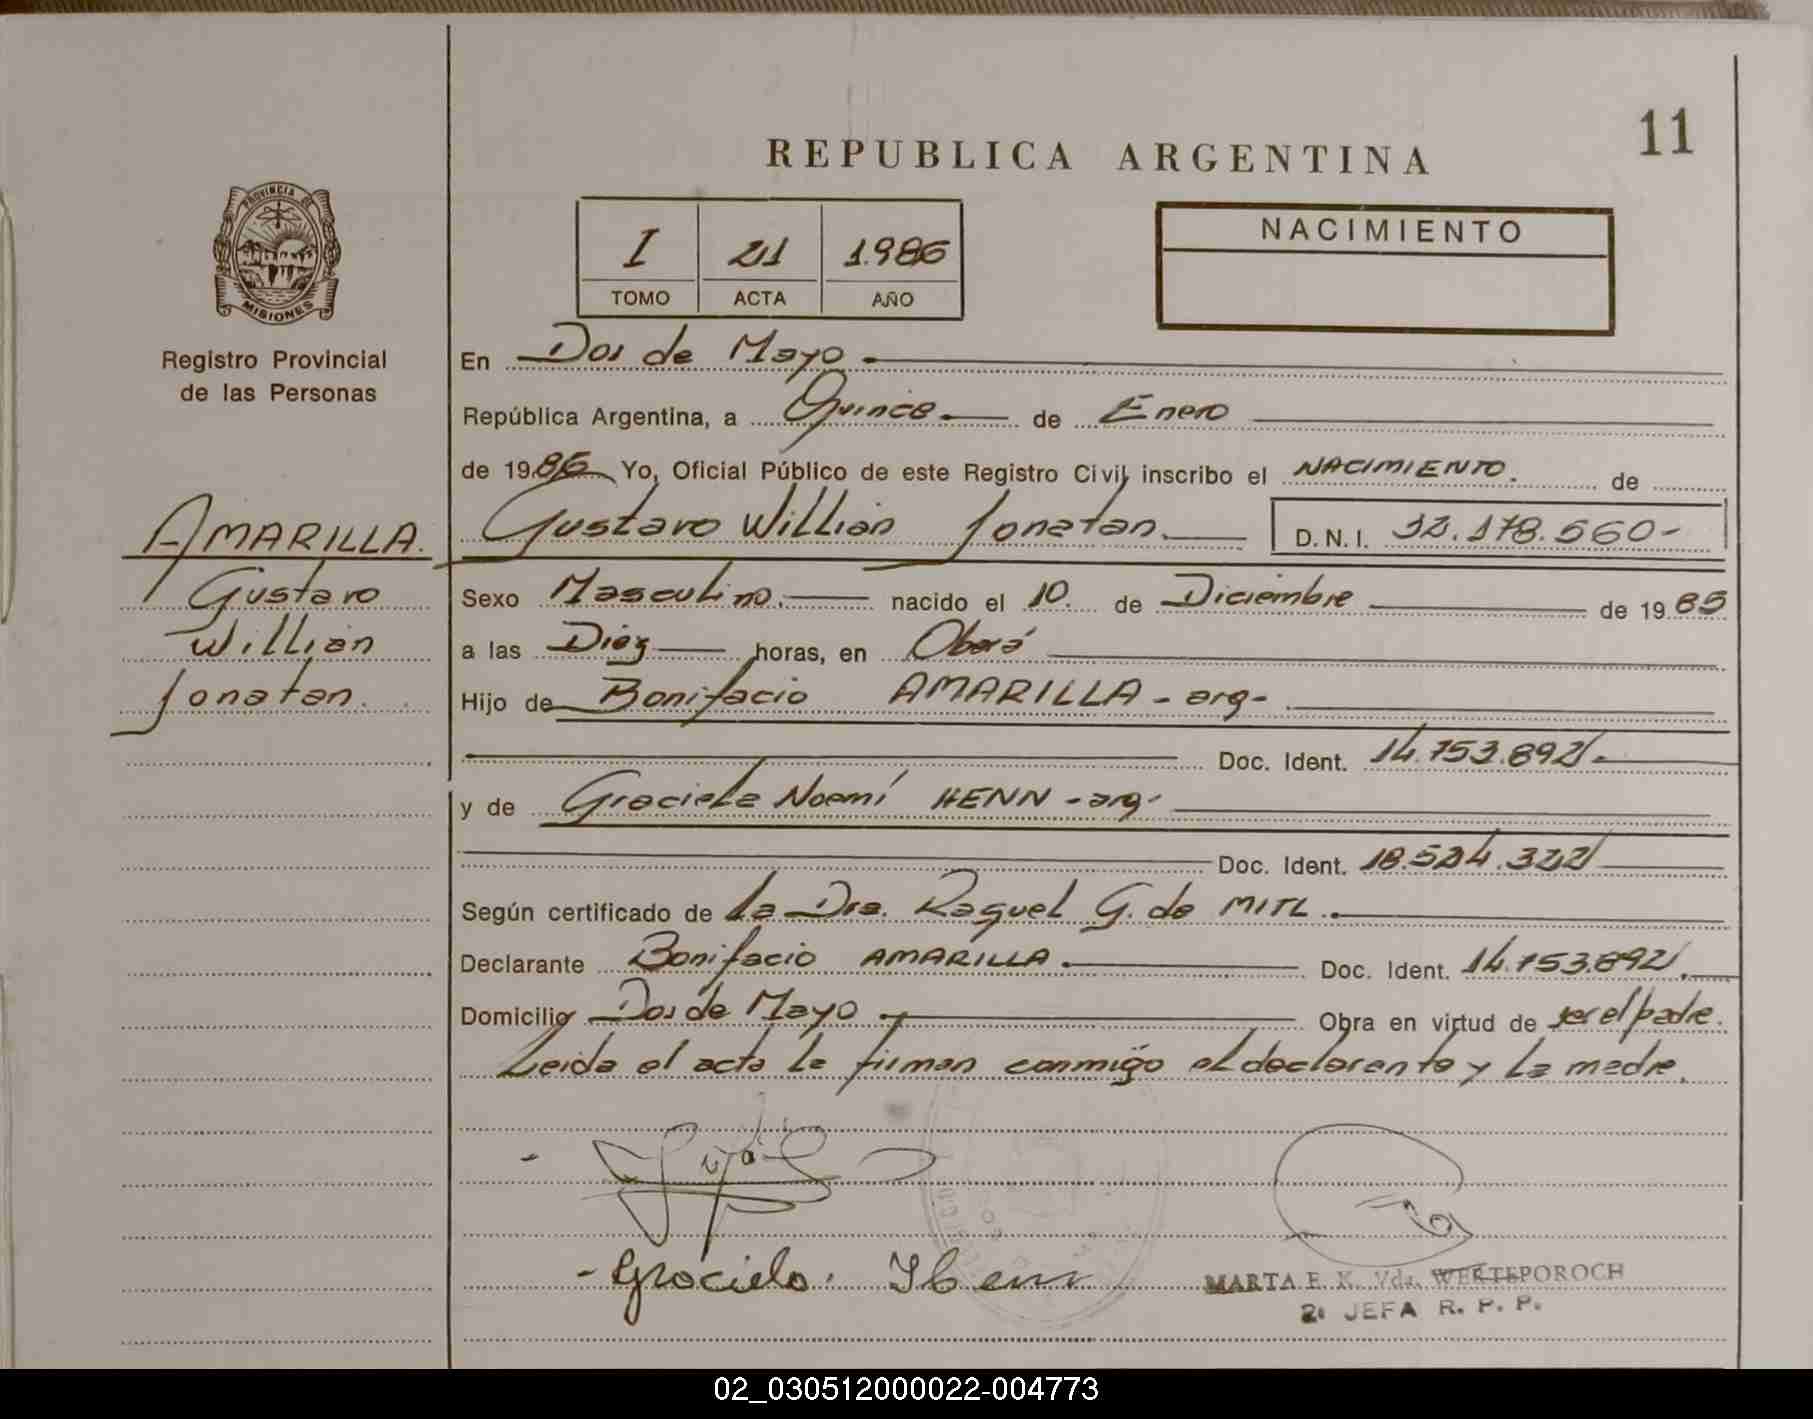 11
REPUBLICA ARGENTINA
PROVINCIA DE
MISIONES
Registro Provincial
de las Personas
I 21 1.986
TOMO ACTA AÑO
NACIMIENTO
En Dos de Mayo
República Argentina, a Quince de Enero
de 1986 Yo, Oficial Público de este Registro Civil inscribo el NACIMIENTO. de
Gustavo Willian Jonatan. D.N.I. 32.178.560-
AMARILLA.
Gustavo
Willian
Jonatan.
Sexo Masculino. nacido el 10. de Diciembre de 1985
a las Diez horas, en Oberá
Hijo de Bonifacio AMARILLA - arg-
Doc. Ident. 14.753.892
y de Graciela Noemí HENN - arg-
Doc. Ident. 18.524.322
Según certificado de La Dra. Raquel G. de MITL.
Declarante Bonifacio AMARILLA. Doc. Ident. 14.753.892
Domicilio Dos de Mayo Obra en virtud de ser el padre.
Leida el acta la firman conmigo el declarante y la madre.
- Graciela. Henn
MARTA E. K. Vda. WERTEPOROCH
2ª JEFA R. P. P.
02_030512000022-004773